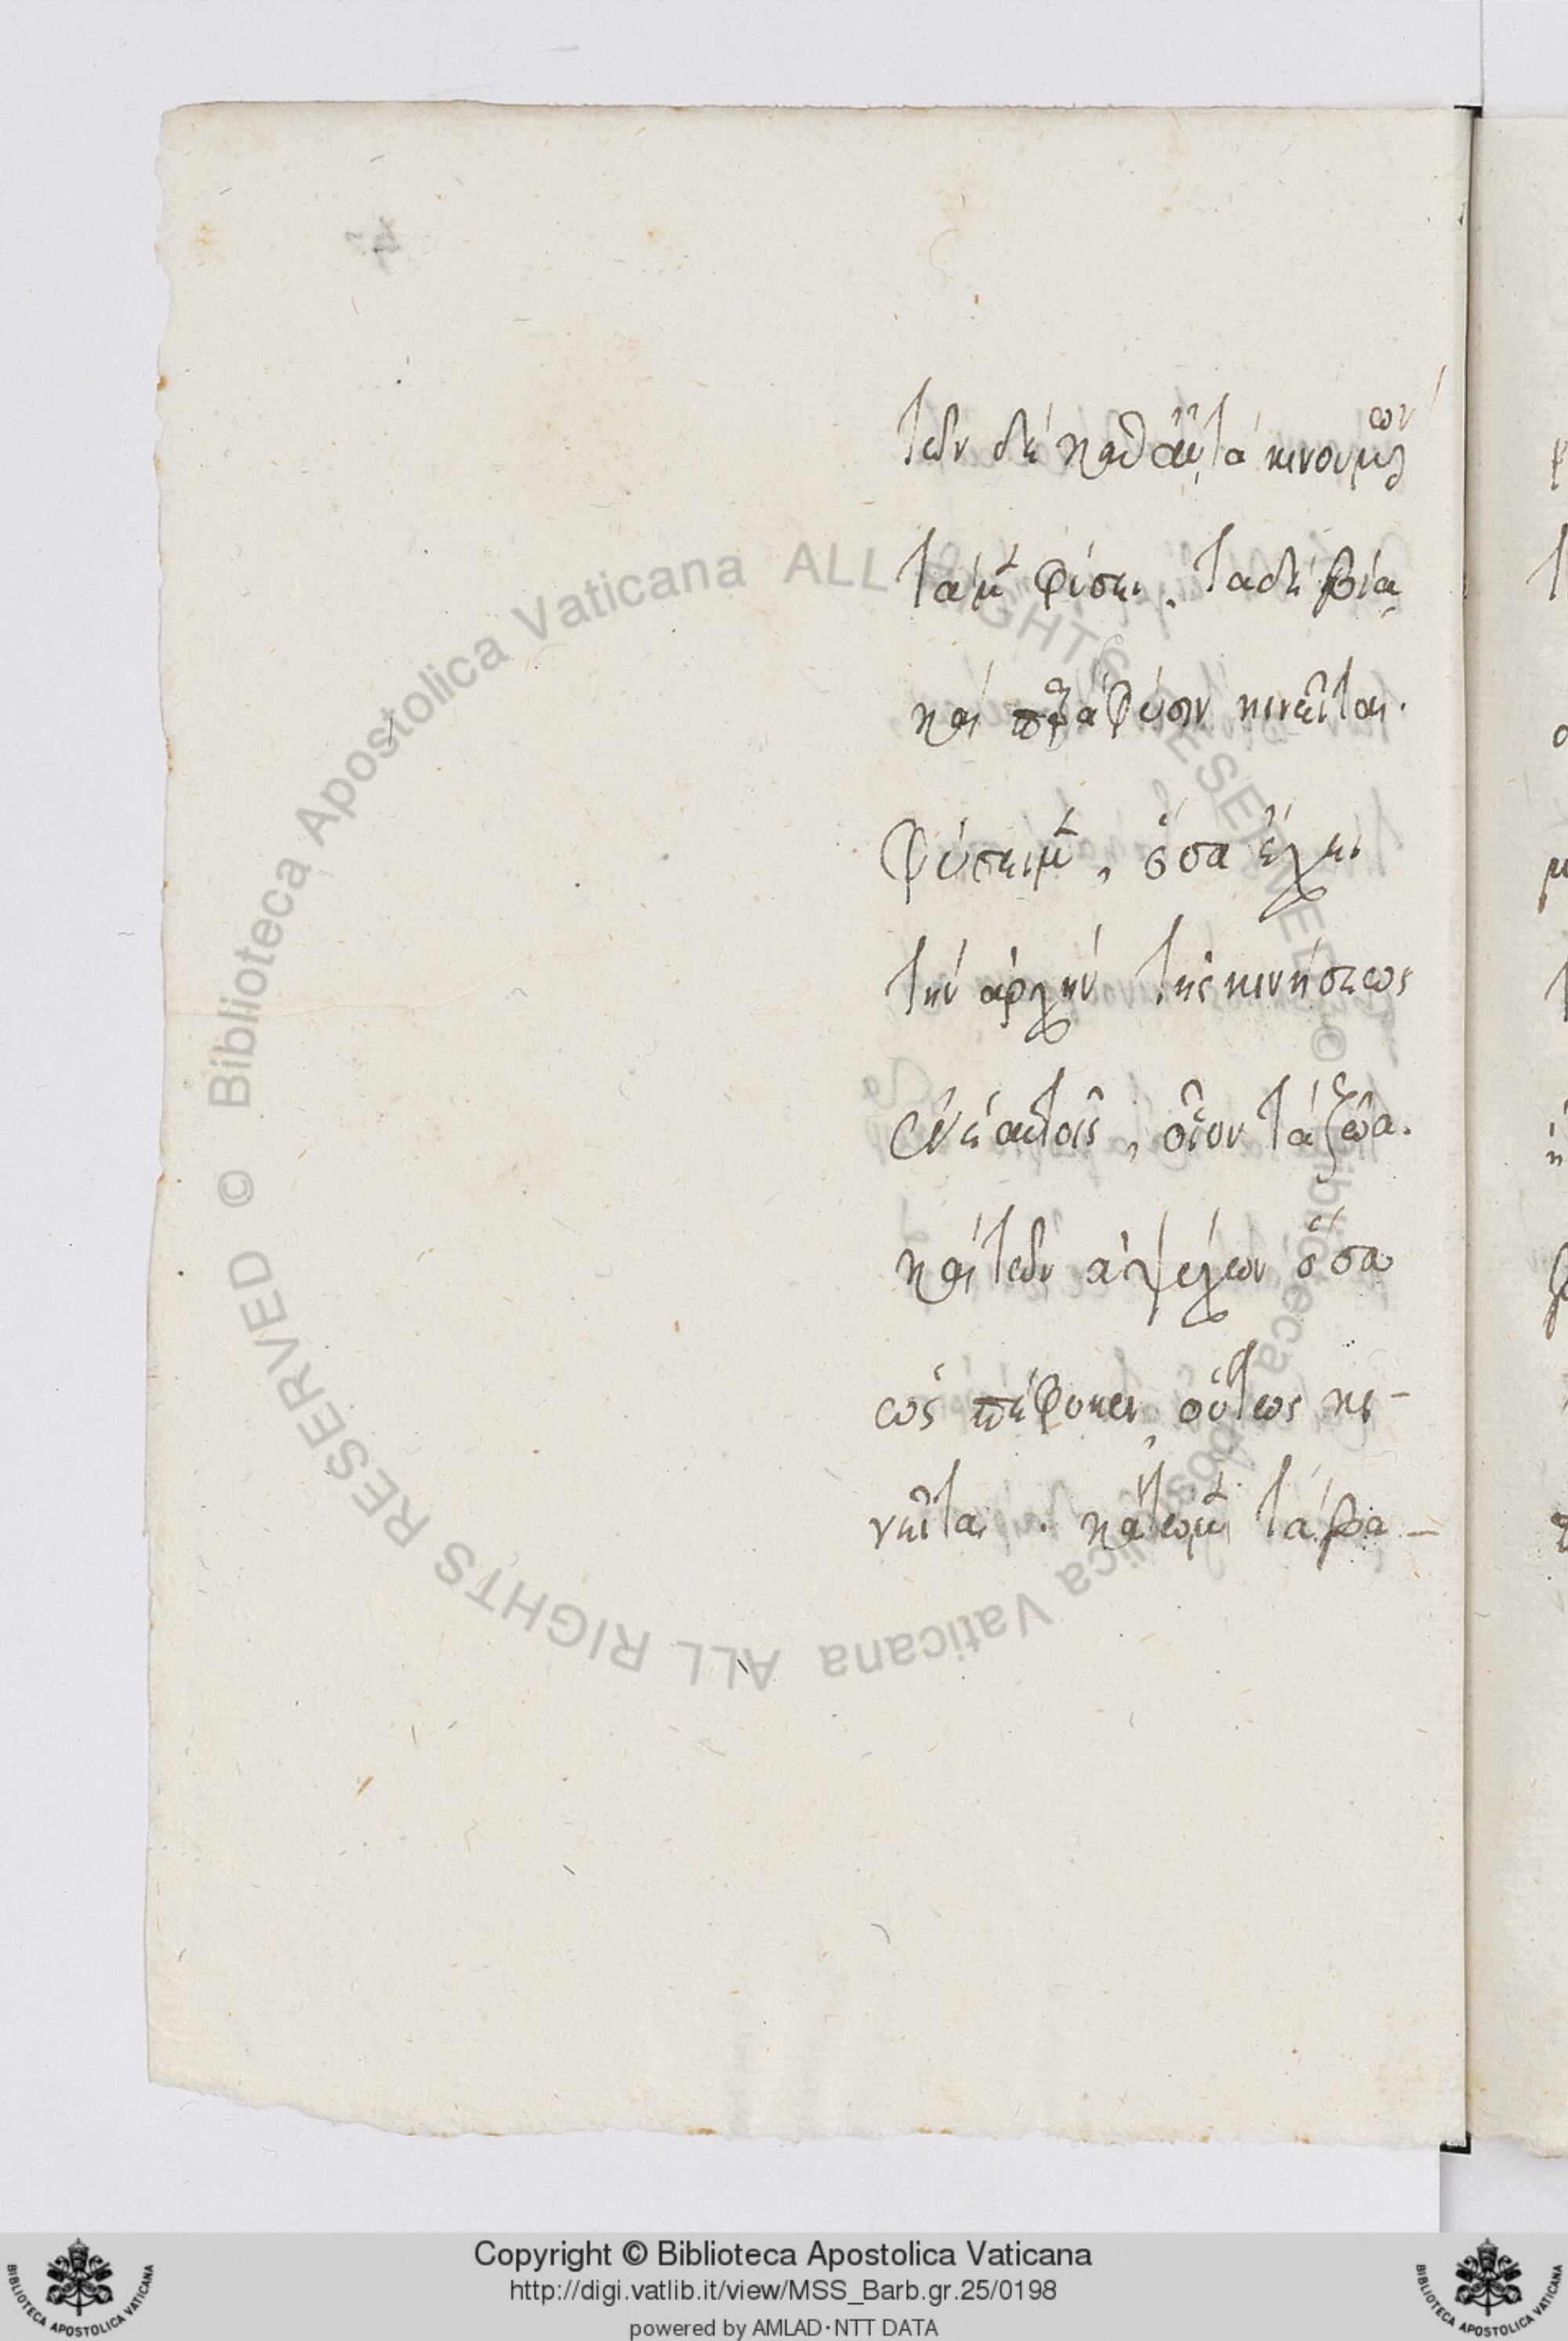 τῶν δὲ καθ' αὑτὰ κινουμ(έν)ων
τὰ μ(ὲν) φύσει, τὰ δὲ βίᾳ
καὶ παρὰ φύσιν κινεῖται.
φύσει μ(ὲν), ὅσα ἔχει
τὴν ἀρχὴν τῆς κινήσεως
ἐν ἑαυτοῖς, οἷον τὰ ζῶα.
καὶ τῶν ἀψύχων ὅσα
ὡς πέφυκεν, οὕτως κι-
νεῖται. κάτω μ(ὲν) τὰ βα-
Copyright © Biblioteca Apostolica Vaticana
http://digi.vatlib.it/view/MSS_Barb.gr.25/0198
powered by AMLAD·NTT DATA
© Biblioteca Apostolica Vaticana ALL RIGHTS RESERVED © Biblioteca Apostolica Vaticana ALL RIGHTS RESERVED
BIBLIOTECA APOSTOLICA VATICANA
BIBLIOTECA APOSTOLICA VATICANA